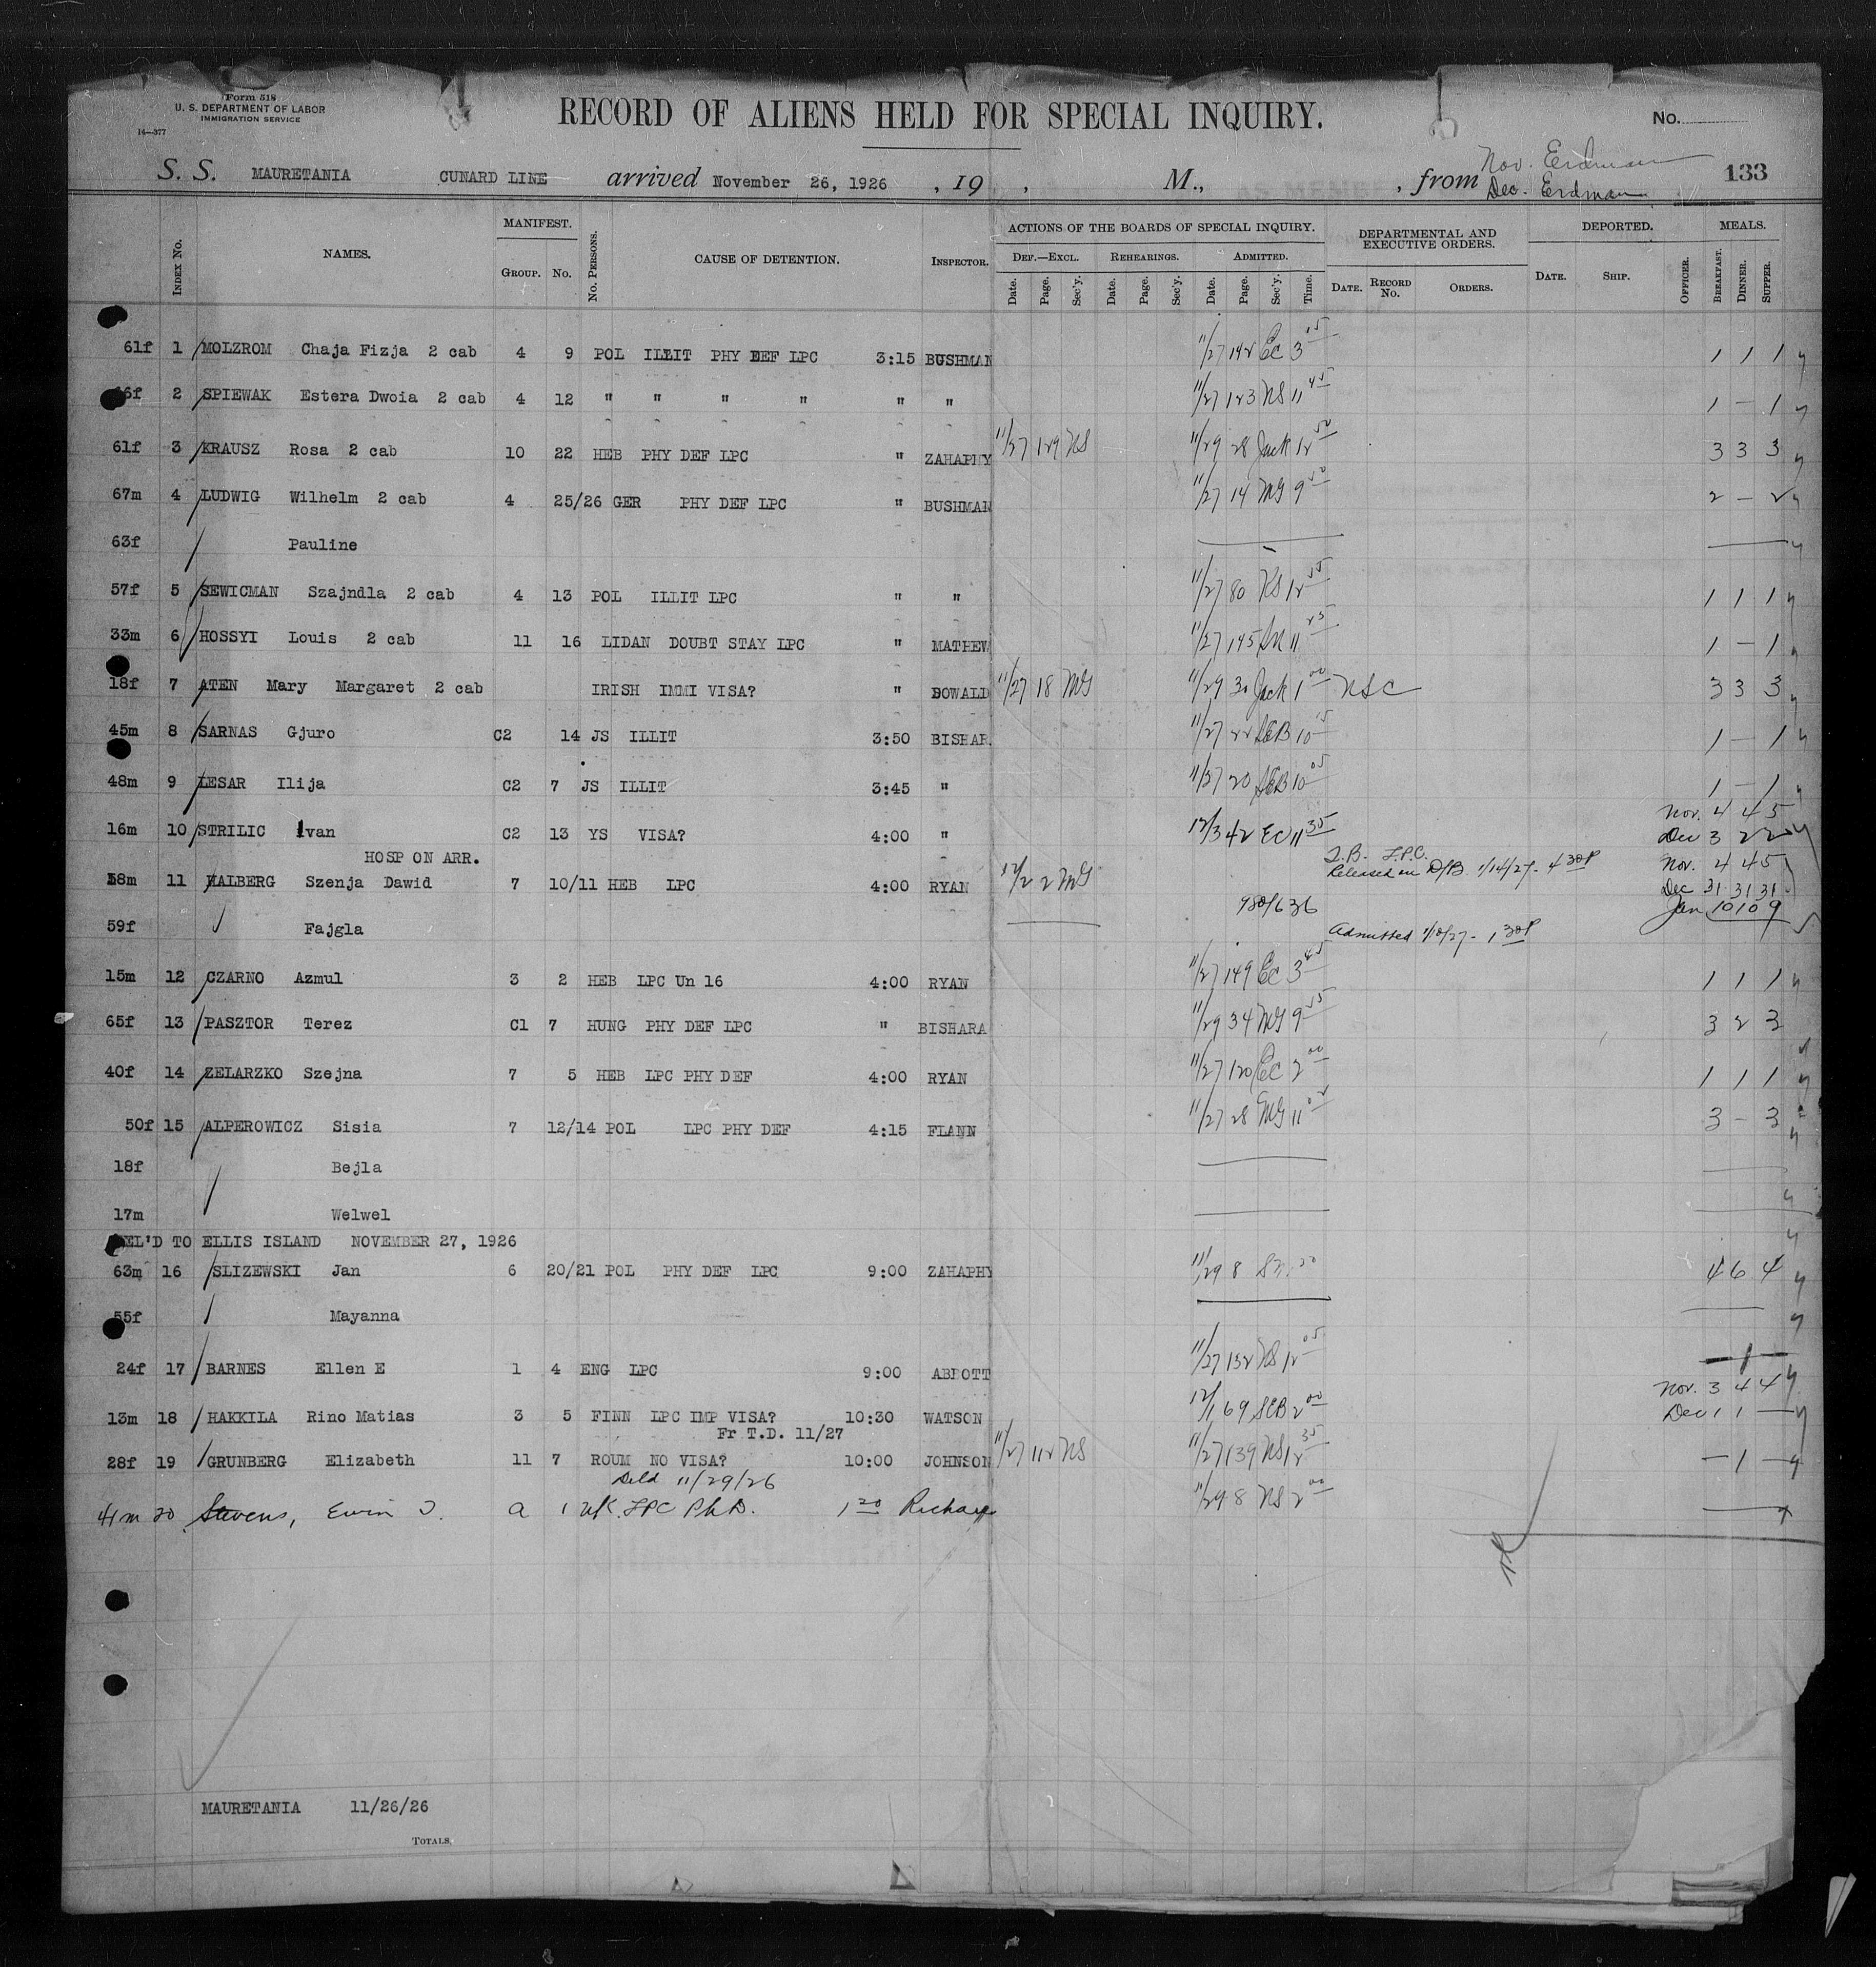 Form 518
U. S. DEPARTMENT OF LABOR
IMMIGRATION SERVICE
14—377
RECORD OF ALIENS HELD FOR SPECIAL INQUIRY.
No.
S. S. MAURETANIA CUNARD LINE arrived November 26, 1926 , 19 , M., , from Nov. Erdman
Dec. Erdman
133
INDEX NO. NAMES. MANIFEST. GROUP. NO. NO. PERSONS. CAUSE OF DETENTION. INSPECTOR. ACTIONS OF THE BOARDS OF SPECIAL INQUIRY. DEF.—EXCL. Date. Page. Sec'y. REHEARINGS. Date. Page. Sec'y. ADMITTED. Date. Page. Sec'y. Time. DEPARTMENTAL AND EXECUTIVE ORDERS. DATE. RECORD NO. ORDERS. DEPORTED. DATE. SHIP. OFFICER. MEALS. BREAKFAST. DINNER. SUPPER.
61f 1 MOLZROM Chaja Fizja 2 cab 4 9 POL ILLIT PHY DEF LPC 3:15 BUSHMAN 11/27 142 EC 3 15 1 1 1
6f 2 SPIEWAK Estera Dwoia 2 cab 4 12 " " " " " " 11/27 123 NS 11 45 1 — 1
61f 3 KRAUSZ Rosa 2 cab 10 22 HEB PHY DEF LPC " ZAHAPHY 11/27 129 NS 11/29 28 Jack 12 50 3 3 3
67m 4 LUDWIG Wilhelm 2 cab 4 25/26 GER PHY DEF LPC " BUSHMAN 11/27 14 MG 9 2 — 2
63f Pauline
57f 5 SEWICMAN Szajndla 2 cab 4 13 POL ILLIT LPC " " 11/27 80 NS 12 1 1 1
33m 6 HOSSYI Louis 2 cab 11 16 LIDAN DOUBT STAY LPC " MATHEW 11/27 145 11 1 — 1
18f 7 ATEN Mary Margaret 2 cab IRISH IMMI VISA? " DOWALD 11/27 18 MG 11/29 30 Jack 1 00 NSC 3 3 3
45m 8 SARNAS Gjuro C2 14 JS ILLIT 3:50 BISHAR 11/27 22 SEB 10 15 1 — 1
48m 9 LESAR Ilija C2 7 JS ILLIT 3:45 " 11/27 20 SEB 10 05 1 — 1
16m 10 STRILIC Ivan C2 13 YS VISA? 4:00 " 12/3 42 EC 11 35 Nov. 4 4 5
Dec 3 2 2
HOSP ON ARR. T.B. L.P.C.
58m 11 HALBERG Szenja Dawid 7 10/11 HEB LPC 4:00 RYAN 12/2 2 MG Released on D/B. 1/14/27 - 4 30P Nov. 4 4 5
Dec 31 31 31
980/636 Jan 10 10 9
59f Fajgla Admitted 1/10/27 - 1 30P
15m 12 CZARNO Azmul 3 2 HEB LPC Un 16 4:00 RYAN 11/27 149 EC 3 45 1 1 1
65f 13 PASZTOR Terez C1 7 HUNG PHY DEF LPC " BISHARA 11/29 34 MG 9 3 2 3
40f 14 ZELARZKO Szejna 7 5 HEB LPC PHY DEF 4:00 RYAN 11/27 120 EC 2 00 1 1 1
50f 15 ALPEROWICZ Sisia 7 12/14 POL LPC PHY DEF 4:15 FLANN 11/27 28 MG 11 3 — 3
18f Bejla
17m Welwel
DEL'D TO ELLIS ISLAND NOVEMBER 27, 1926
63m 16 SLIZEWSKI Jan 6 20/21 POL PHY DEF LPC 9:00 ZAHAPHY 11/29 8 4 6 4
55f Mayanna
24f 17 BARNES Ellen E 1 4 ENG LPC 9:00 ABBOTT 11/27 132 NS 12 05 — 1 —
13m 18 HAKKILA Rino Matias 3 5 FINN LPC IMP VISA? 10:30 WATSON 12/1 69 SEB 2 00 Nov. 3 4 4
Dec 1 1 —
Fr T.D. 11/27
28f 19 GRUNBERG Elizabeth 11 7 ROUM NO VISA? 10:00 JOHNSON 11/27 112 NS 11/27 139 NS 12 35 — 1 —
Deld 11/29/26
41m 20 Stevens, Ewin J. a 1 LPC Ph D. 1 20 11/29 8 NS 2 00
MAURETANIA 11/26/26
TOTALS